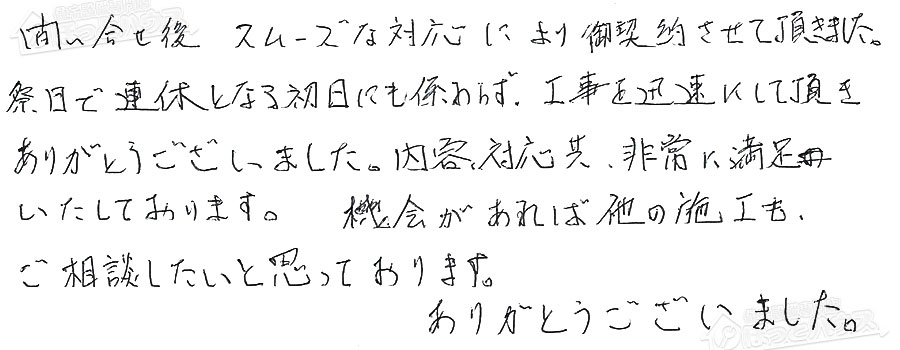 問い合せ後 スムーズな対応により御契約させて頂きました。
祭日で連休となる初日にも係わらず、工事を迅速にして頂き
ありがとうございました。内容、対応共、非常に満足
いたしております。 機会があれば他の施工も、
ご相談したいと思っております。
ありがとうございました。